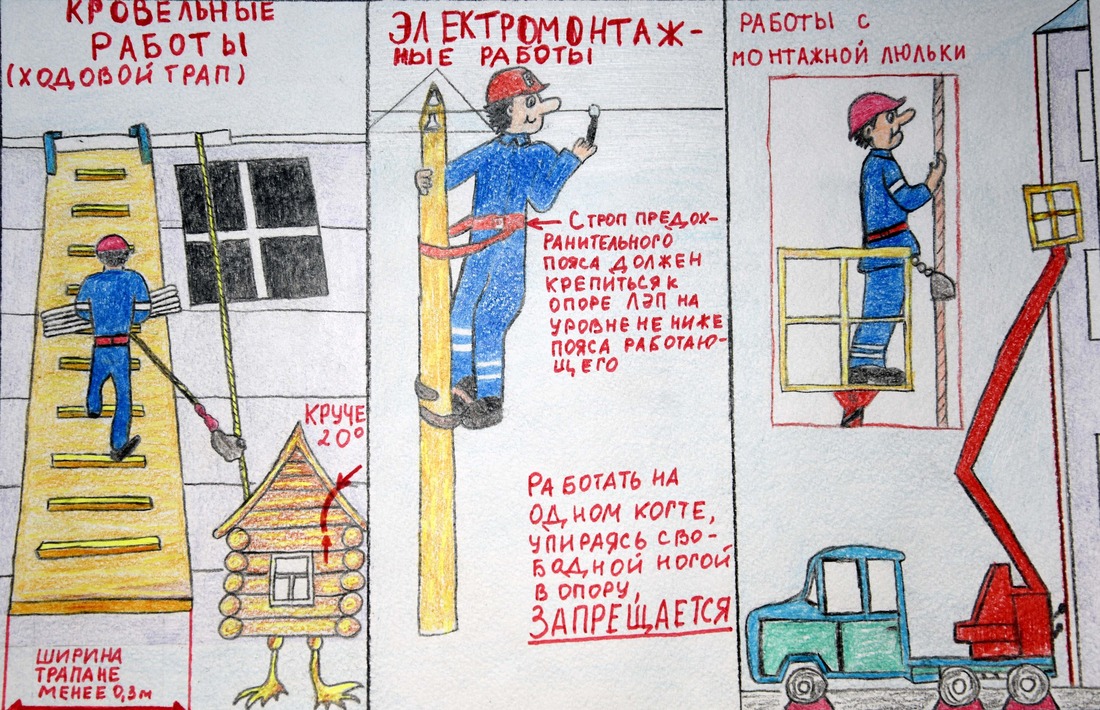 КРОВЕЛЬНЫЕ
РАБОТЫ
(ХОДОВОЙ ТРАП)
КРУЧЕ
20°
ШИРИНА
ТРАПА НЕ
МЕНЕЕ 0,3 м
ЭЛЕКТРОМОНТАЖ-
НЫЕ РАБОТЫ
СТРОП ПРЕДОХ-
РАНИТЕЛЬНОГО
ПОЯСА ДОЛЖЕН
КРЕПИТЬСЯ К
ОПОРЕ ЛЭП НА
УРОВНЕ НЕ НИЖЕ
ПОЯСА РАБОТАЮ-
ЩЕГО
РАБОТАТЬ НА
ОДНОМ КОГТЕ,
УПИРАЯСЬ СВО-
БАДНОЙ НОГОЙ
В ОПОРУ,
ЗАПРЕЩАЕТСЯ
РАБОТЫ С
МОНТАЖНОЙ ЛЮЛЬКИ